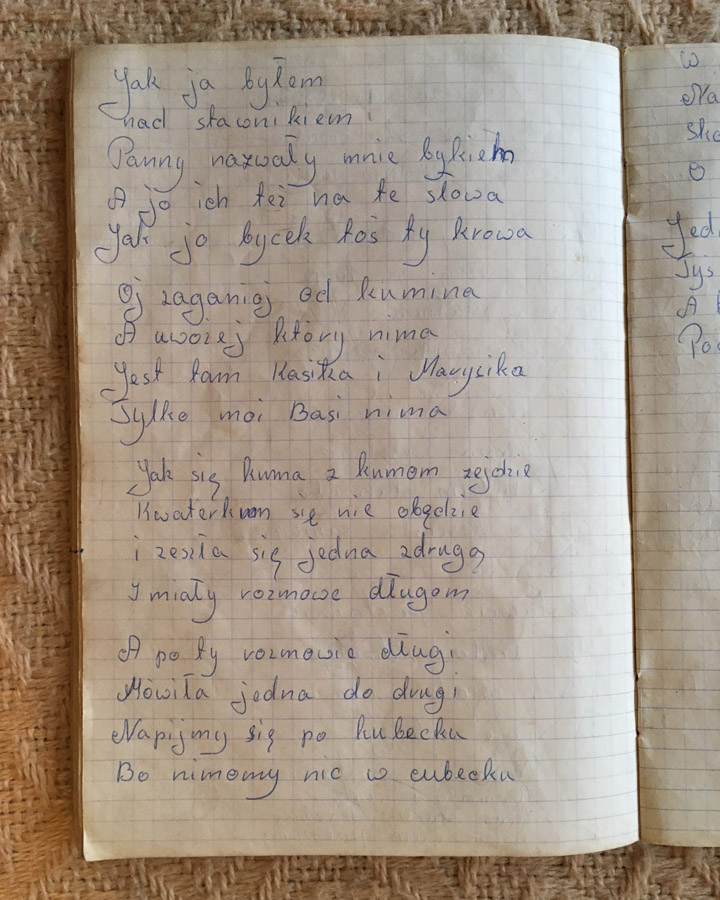 Jak ja byłem
nad stawnikiem
Panny nazwały mnie bykiem
A jo ich też na te słowa
Jak jo bycek toś ty krowa
Oj zaganioj od kumina
A uwozej który nima
Jest tam Kaśka i Marysika
Tylko moi Basi nima
Jak się kuma z kumom zejdzie
Kwaterkom się nie obędzie
i zeszła się jedna zdrugą
I miały rozmowe długom
A po ty rozmowie długi
Mówiła jedna do drugi
Napijmy się po kubecku
Bo nimomy nic w cubecku
W
Na
O
A